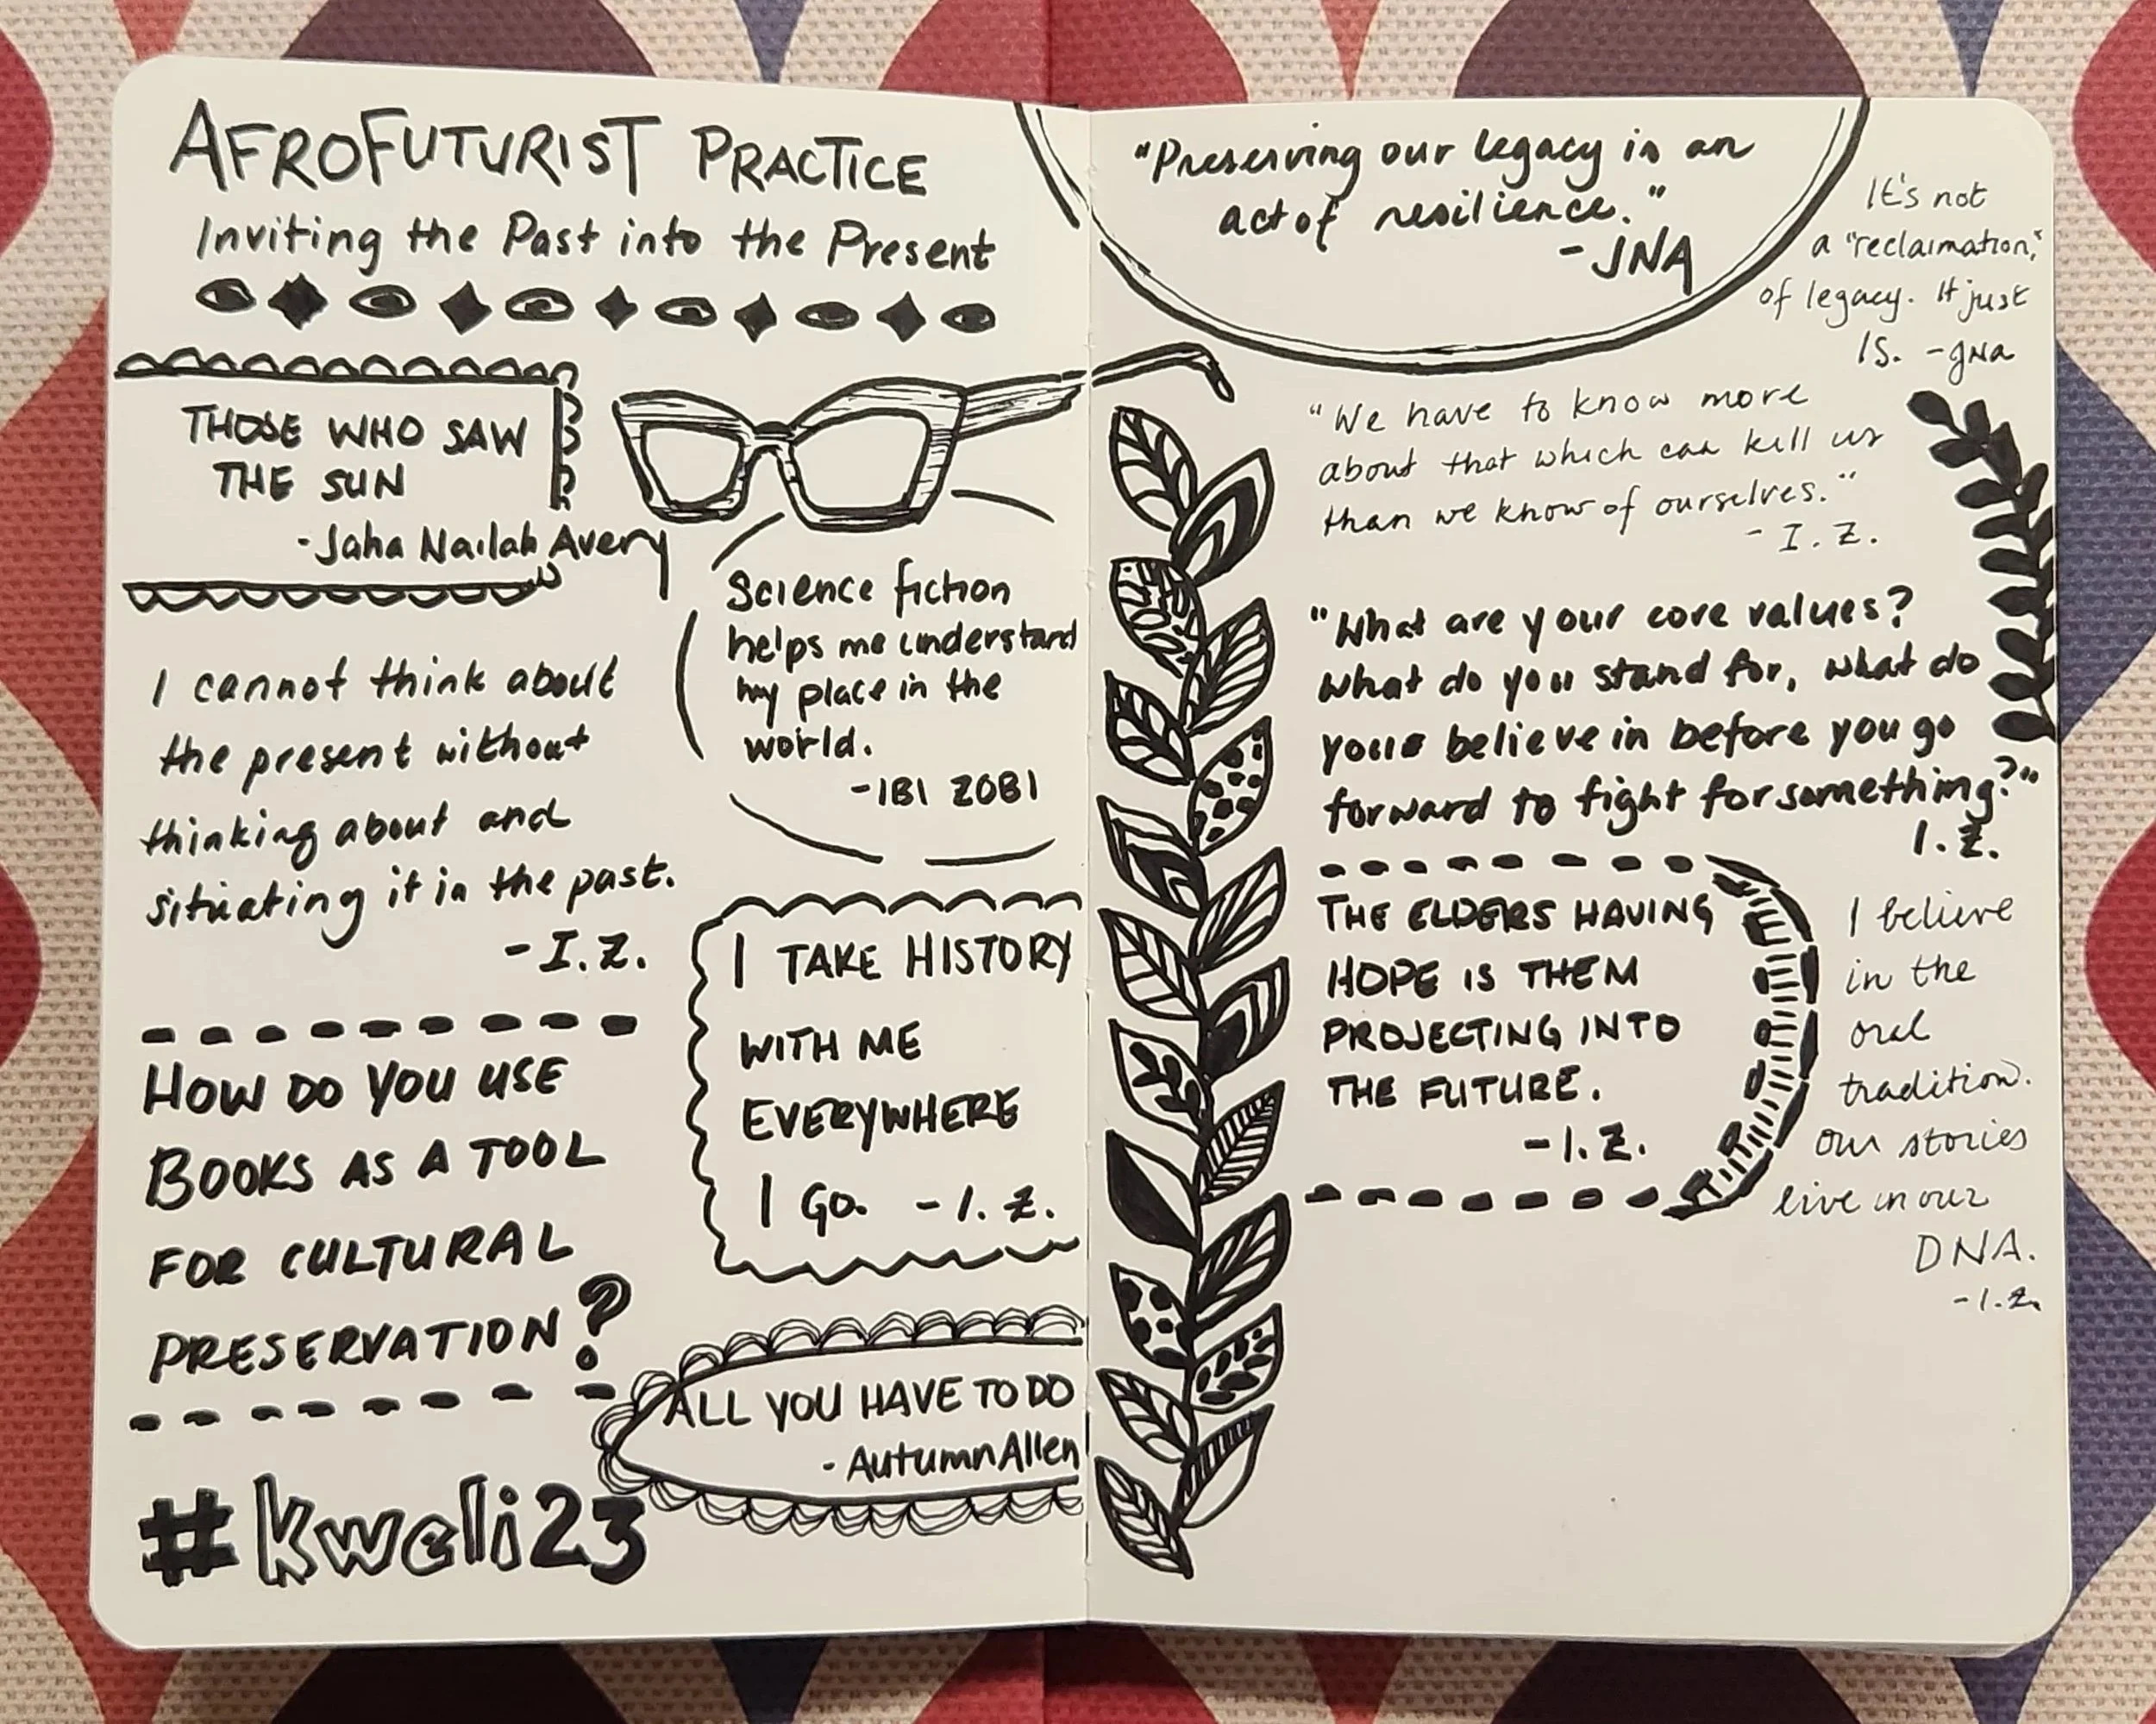 AFROFUTURIST PRACTICE
Inviting the Past into the Present
THOSE WHO SAW
THE SUN
-Jaha Nailah Avery
Science fiction
helps me understand
my place in the
world.
-IBI ZOBI
I cannot think about
the present without
thinking about and
situating it in the past.
-I.Z.
I TAKE HISTORY
WITH ME
EVERYWHERE
I GO. -I.Z.
HOW DO YOU USE
BOOKS AS A TOOL
FOR CULTURAL
PRESERVATION?
ALL YOU HAVE TO DO
-Autumn Allen
#kweli23
"Preserving our legacy is an
act of resilience."
-JNA
It's not
a "reclaimation,"
of legacy. It just
IS. -JNA
"We have to know more
about that which can kill us
than we know of ourselves."
-I.Z.
"What are your core values?
What do you stand for, what do
you believe in before you go
forward to fight for something?"
I.Z.
THE ELDERS HAVING
HOPE IS THEM
PROJECTING INTO
THE FUTURE.
-I.Z.
I believe
in the
oral
tradition.
Our stories
live in our
DNA.
-I.Z.